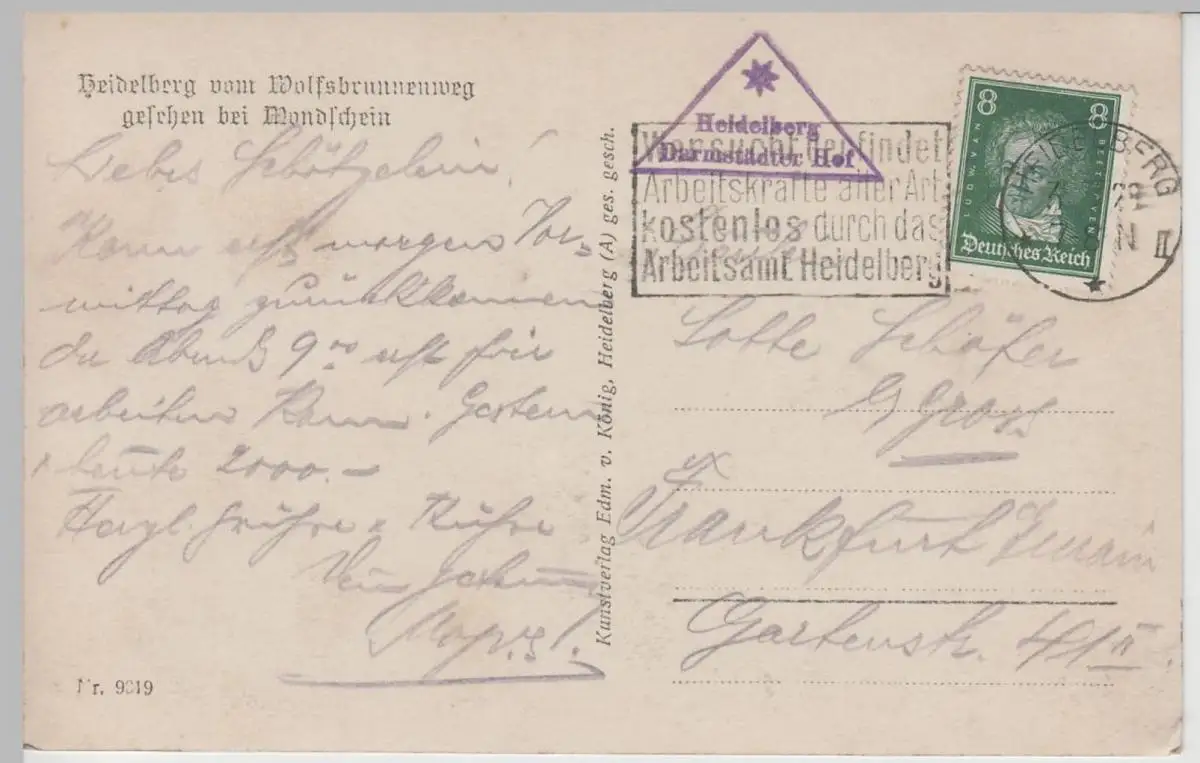 Heidelberg vom Wolfsbrunnenweg
gesehen bei Mondschein
Liebes Schätzelein!
Kann erst morgen Vor-
mittag zurückkommen
da Abends 9⁰⁰ erst für
arbeiten kann. Gestern
heute 2000.-
Herzl. Grüsse & Küsse
Dein
Nr. 9819
Kunstverlag Edm. v. König, Heidelberg (A) ges. gesch.
Heidelberg
Darmstädter Hof
Wer sucht der findet
Arbeitskräfte aller Art
kostenlos durch das
Arbeitsamt Heidelberg
8 8
LUDW. VAN BEETHOVEN
Deutsches Reich
HEIDELBERG
II
Lotte Schäfer
b/ Gross
Frankfurt Main
Gartenstr. 41 II.